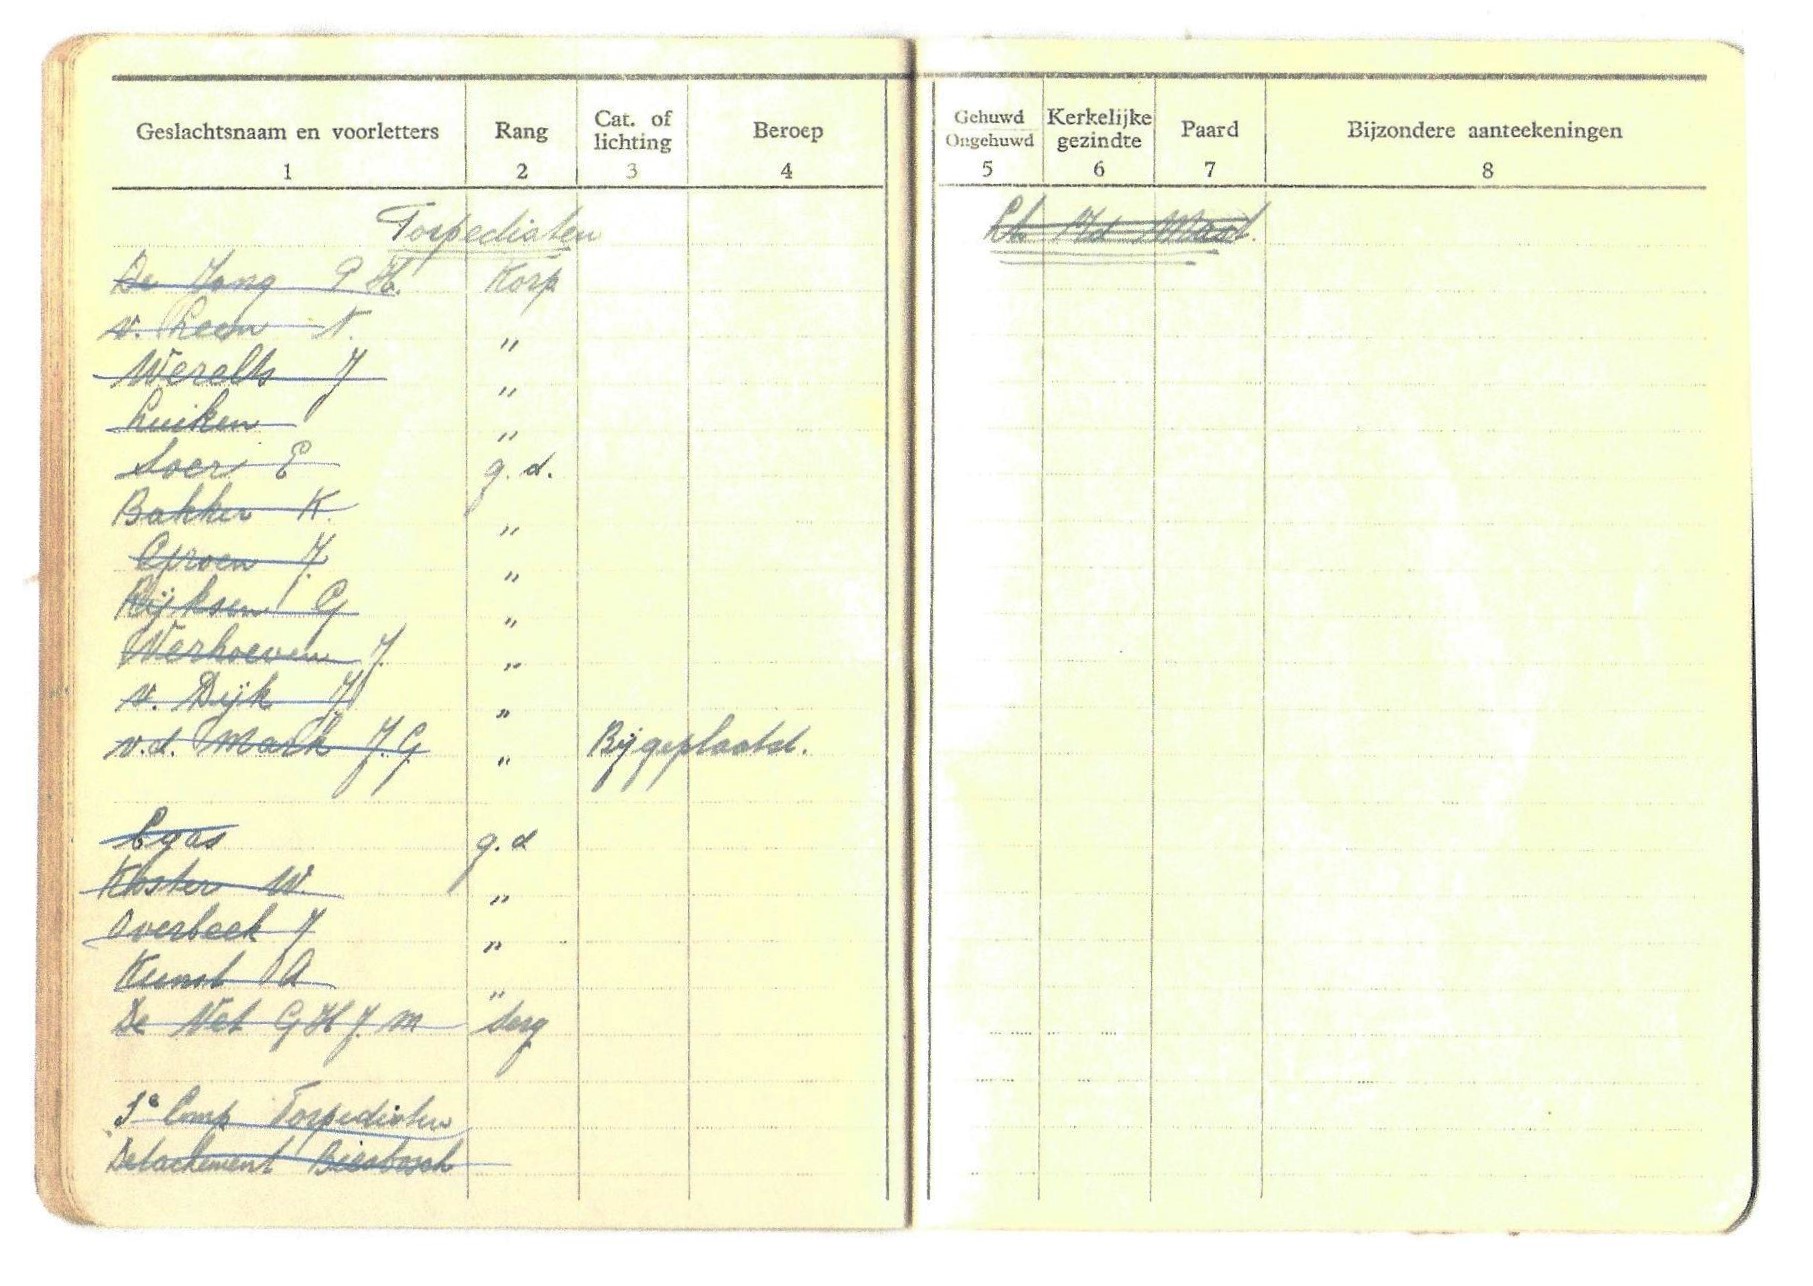 Geslachtsnaam en voorletters Rang Cat. of lichting Beroep
1 2 3 4
Torpedisten
De Jong P H. Korp
v. Leen N. "
Werelts J "
Luiken "
Soer E g. d.
Bakker K. "
Groen J. "
Rijksen G "
Verhoeven J. "
v. Dijk J "
v.d. Mark J.G. " Bijgeplaatst.
Egas g. d
Koster W. "
Overbeek J "
Kunst A "
De Vet G H J. M Serg
1e Comp Torpedisten
Detachement Biesbosch
Gehuwd Ongehuwd Kerkelijke gezindte Paard Bijzondere aanteekeningen
5 6 7 8